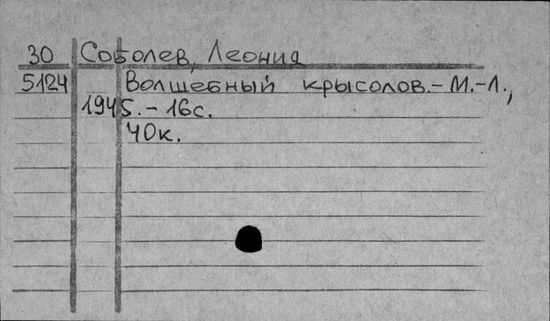 30 Соболев, Леонид
5124 Волшебный крысолов.-М.-Л.,
1945.-16с.
40к.